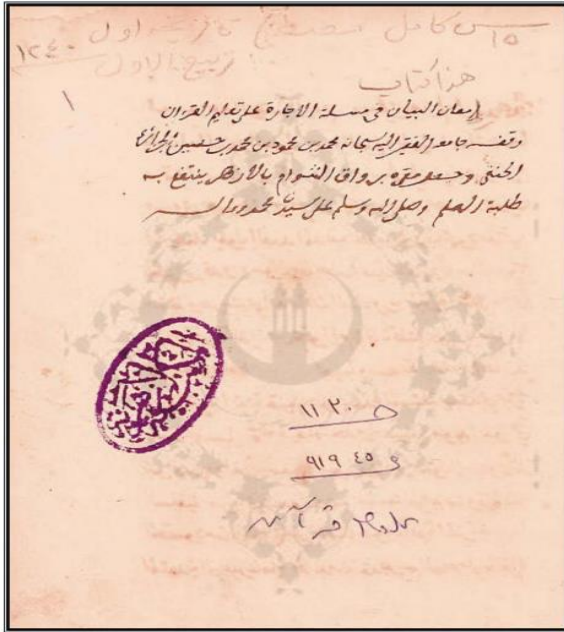 كامل
١٢٤٠
ربيع الاول
هذا كتاب
١
إمعان البيان في مسئلة الاجارة على تعليم القرءان
وقفه جامعه الفقير اليه سبحانه محمد بن محمود بن محمد بن حسين الجزائري
الحنفي وجعل مقره برواق الشوام بالازهر ينتفع به
طلبة العلم وصلى الله وسلم على سيدنا محمد وءاله
٤٥ ٩١٩
علوم قرآن